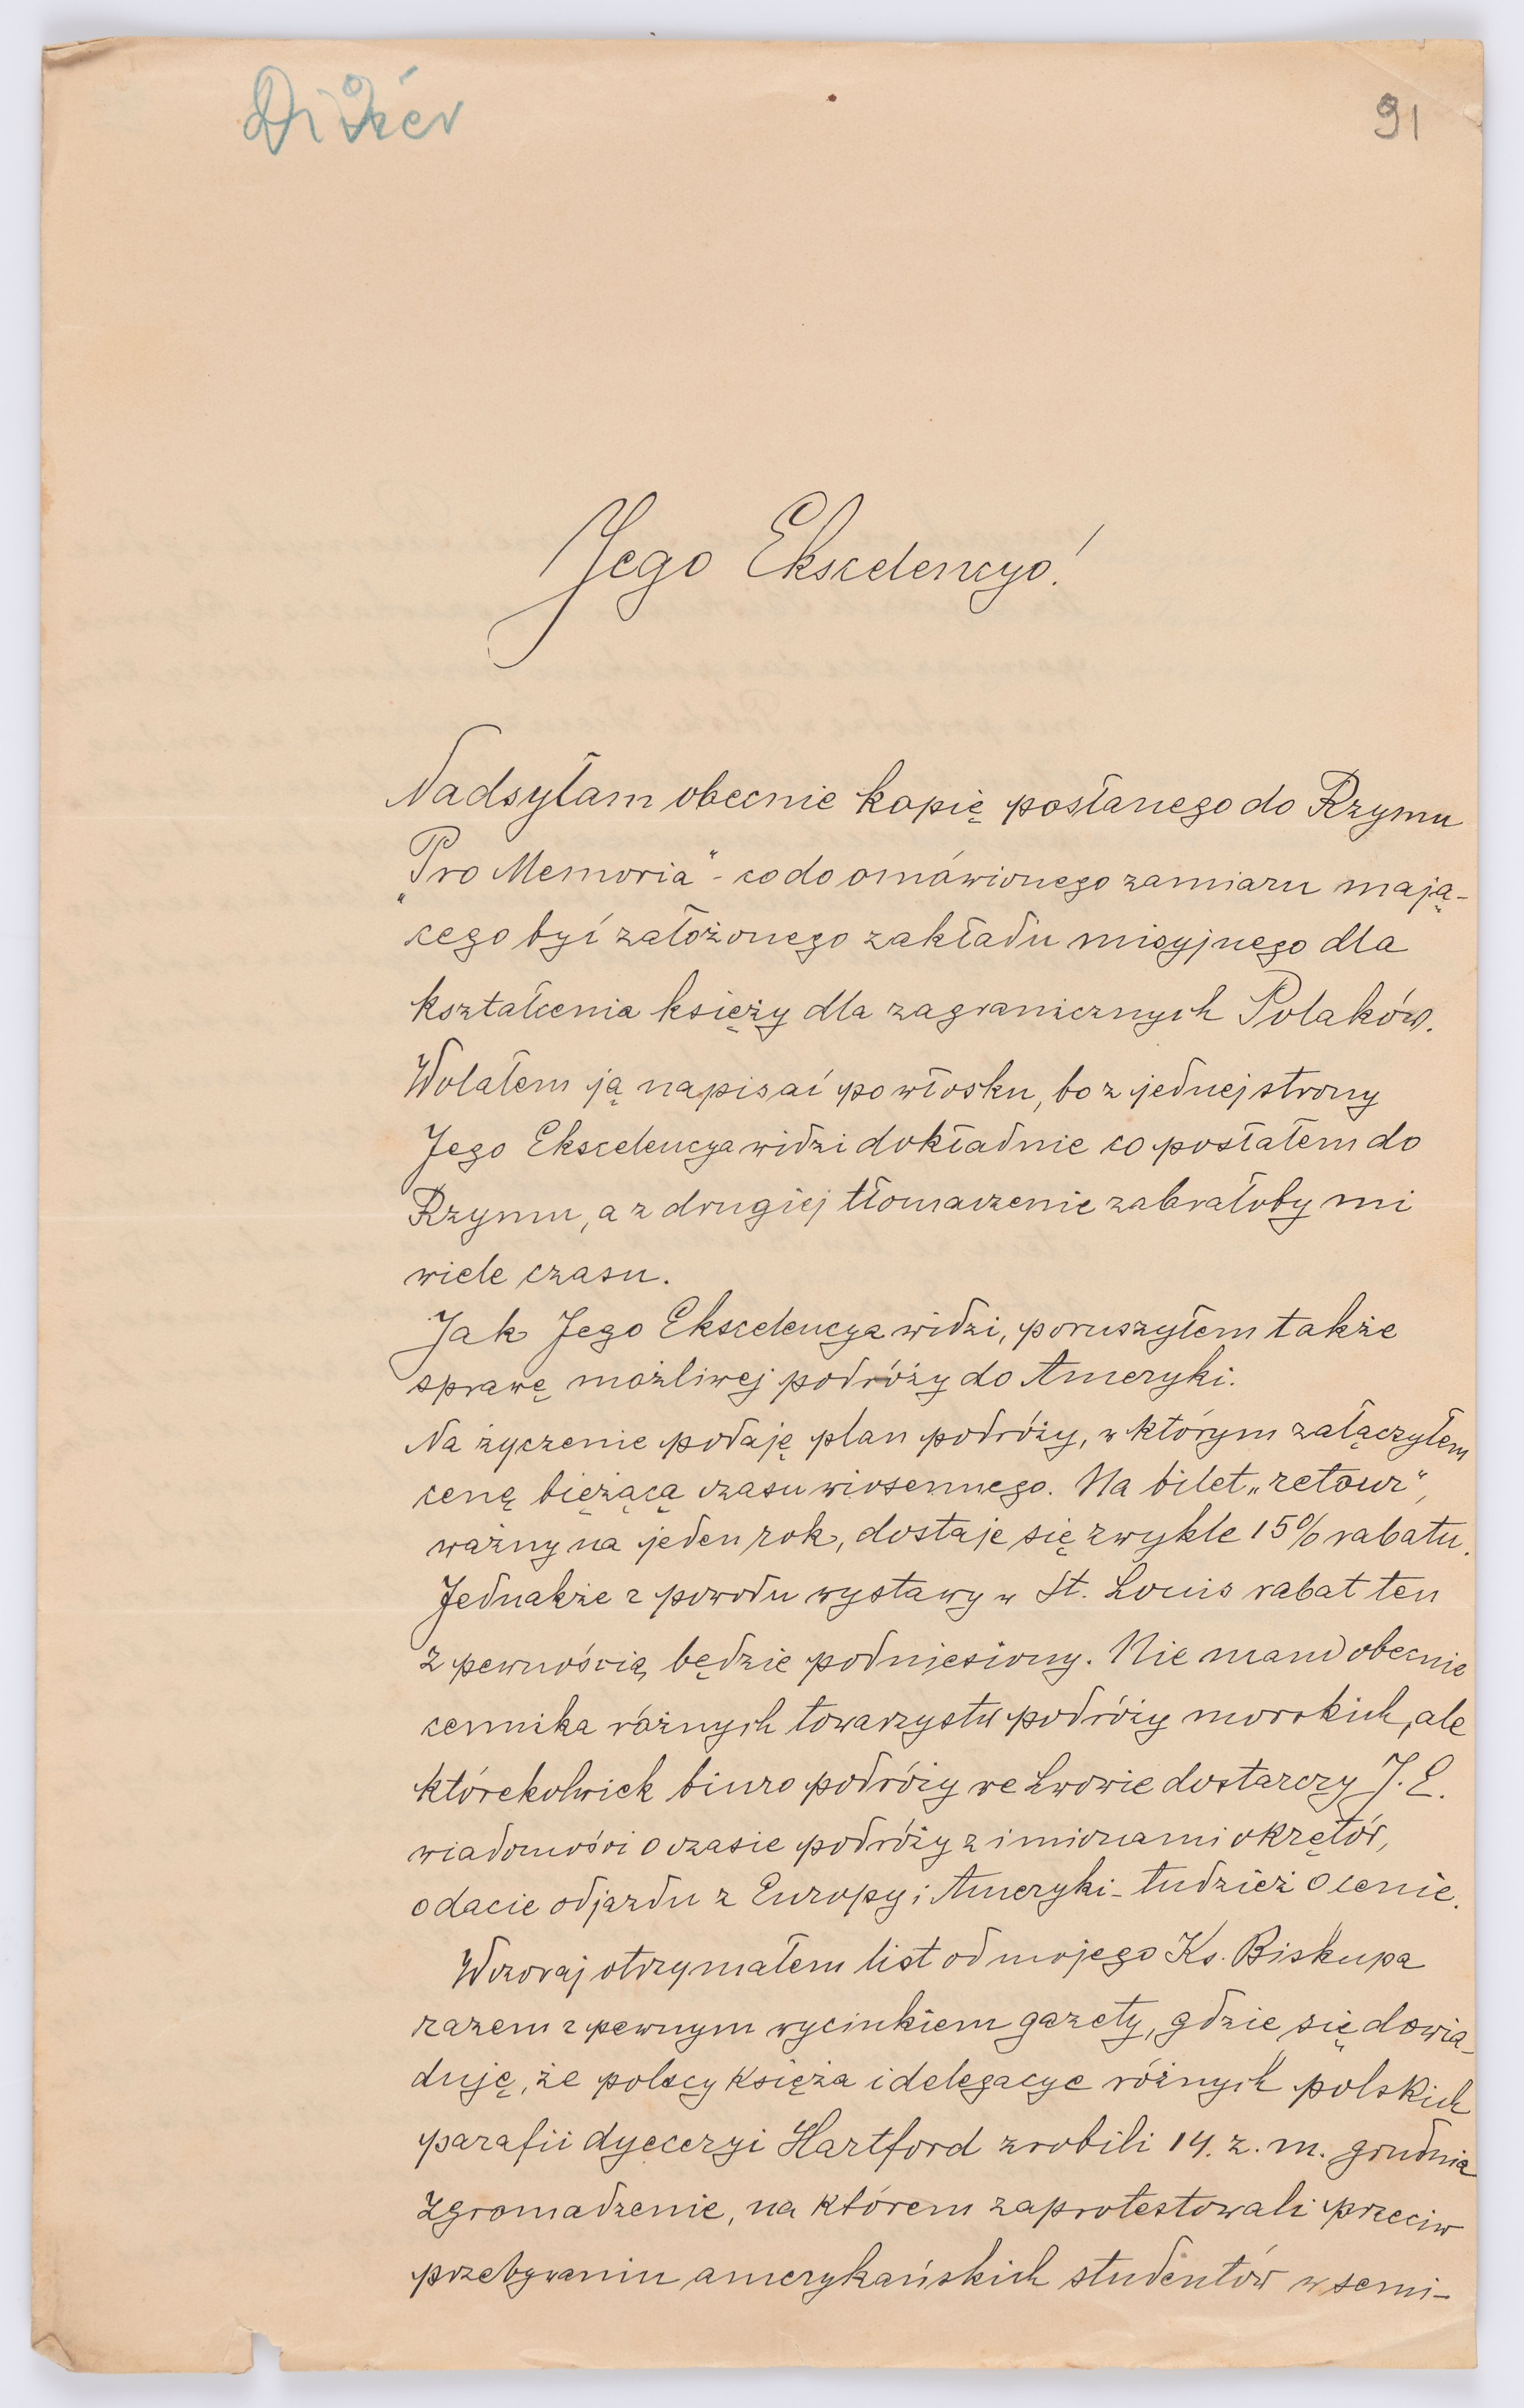 91
Jego Ekscelencyo!
Nadsyłam obecnie kopię posłanego do Rzymu
„Pro Memoria“ - co do omówionego zamiaru mają-
cego być założonego zakładu misyjnego dla
kształcenia księży dla zagranicznych Polaków.
Wolałem ją napisać po włosku, bo z jednej strony
Jego Ekscelencya widzi dokładnie co posłałem do
Rzymu, a z drugiej tłomaczenie zabrałoby mi
wiele czasu.
Jak Jego Ekscelencya widzi, poruszyłem także
sprawę możliwej podróży do Ameryki.
Na życzenie podaję plan podróży, w którym załączyłem
cenę bieżącą czasu wiosennego. Na bilet „retour“,
ważny na jeden rok, dostaje się zwykle 15% rabatu.
Jednakże z powodu wystawy w St. Louis rabat ten
z pewnością będzie podniesiony. Nie mam obecnie
cennika różnych towarzystw podróży morskich, ale
którekolwiek biuro podróży we Lwowie dostarczy J. E.
wiadomości o czasie podróży z imionami okrętów,
o dacie odjazdu z Europy i Ameryki - tudzież o cenie.
Wczoraj otrzymałem list od mojego Ks. Biskupa
razem z pewnym wycinkiem gazety, gdzie się dowia-
duję, że polscy księża i delegacye różnych polskich
parafii dyecezyi Hartford zrobili 14. z. m. grudnia
zgromadzenie, na którem zaprotestowali przeciw
przebywaniu amerykańskich studentów w semi-